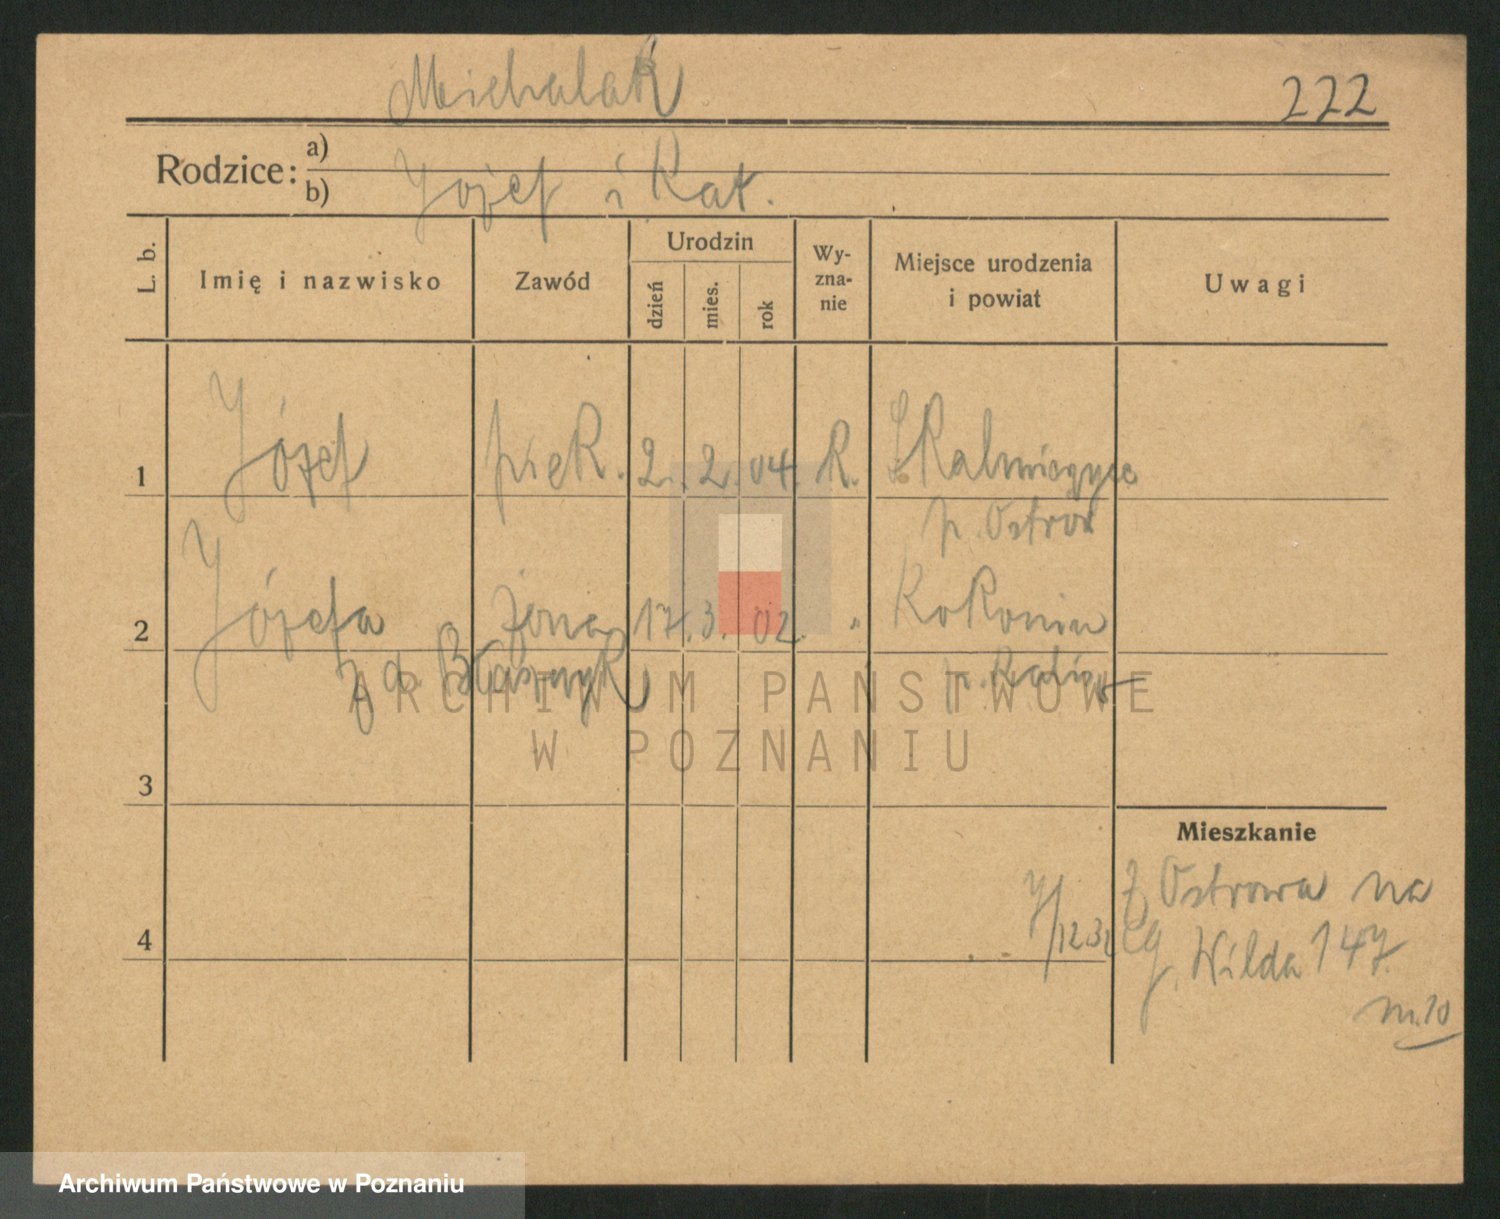 Michalak
222
Rodzice: a)
b) Józef i Kat.
L. b.
Imię i nazwisko
Zawód
Urodzin
dzień
mies.
rok
Wy-
zna-
nie
Miejsce urodzenia
i powiat
Uwagi
1 Józef piek. 2. 2. 04. R.
p. Ostrow
2 Józefa żona 17. 3. 02. " Kokonin
z d. Błaszczyk p. Kalisz
3
Mieszkanie
4
7/12.32 Z Ostrowa na
G. Wilda 147
m. 10
ARCHIWUM PAŃSTWOWE
W POZNANIU
Archiwum Państwowe w Poznaniu